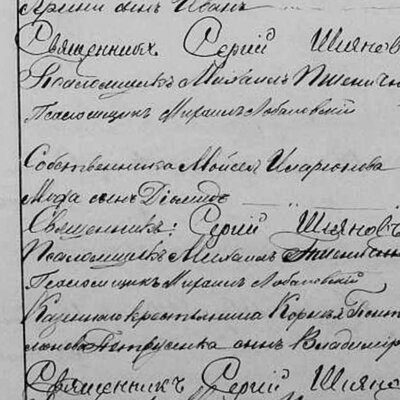 Ирини сынъ Иванъ
Священникъ Сергій Шияновъ
Псаломщикъ Михаилъ Пшеничн
Псаломщикъ Михаилъ Лобановскій
Собственника Мойсея Иларионова
сынъ Діомидъ
Священникъ: Сергій Шияновъ
Псаломщикъ Михаилъ Пшеничн
Псаломщикъ Михаилъ Лобановскій
Казеннаго крестьянина Корнѣя
сынъ Владимір
Священникъ Сергій Шиянов